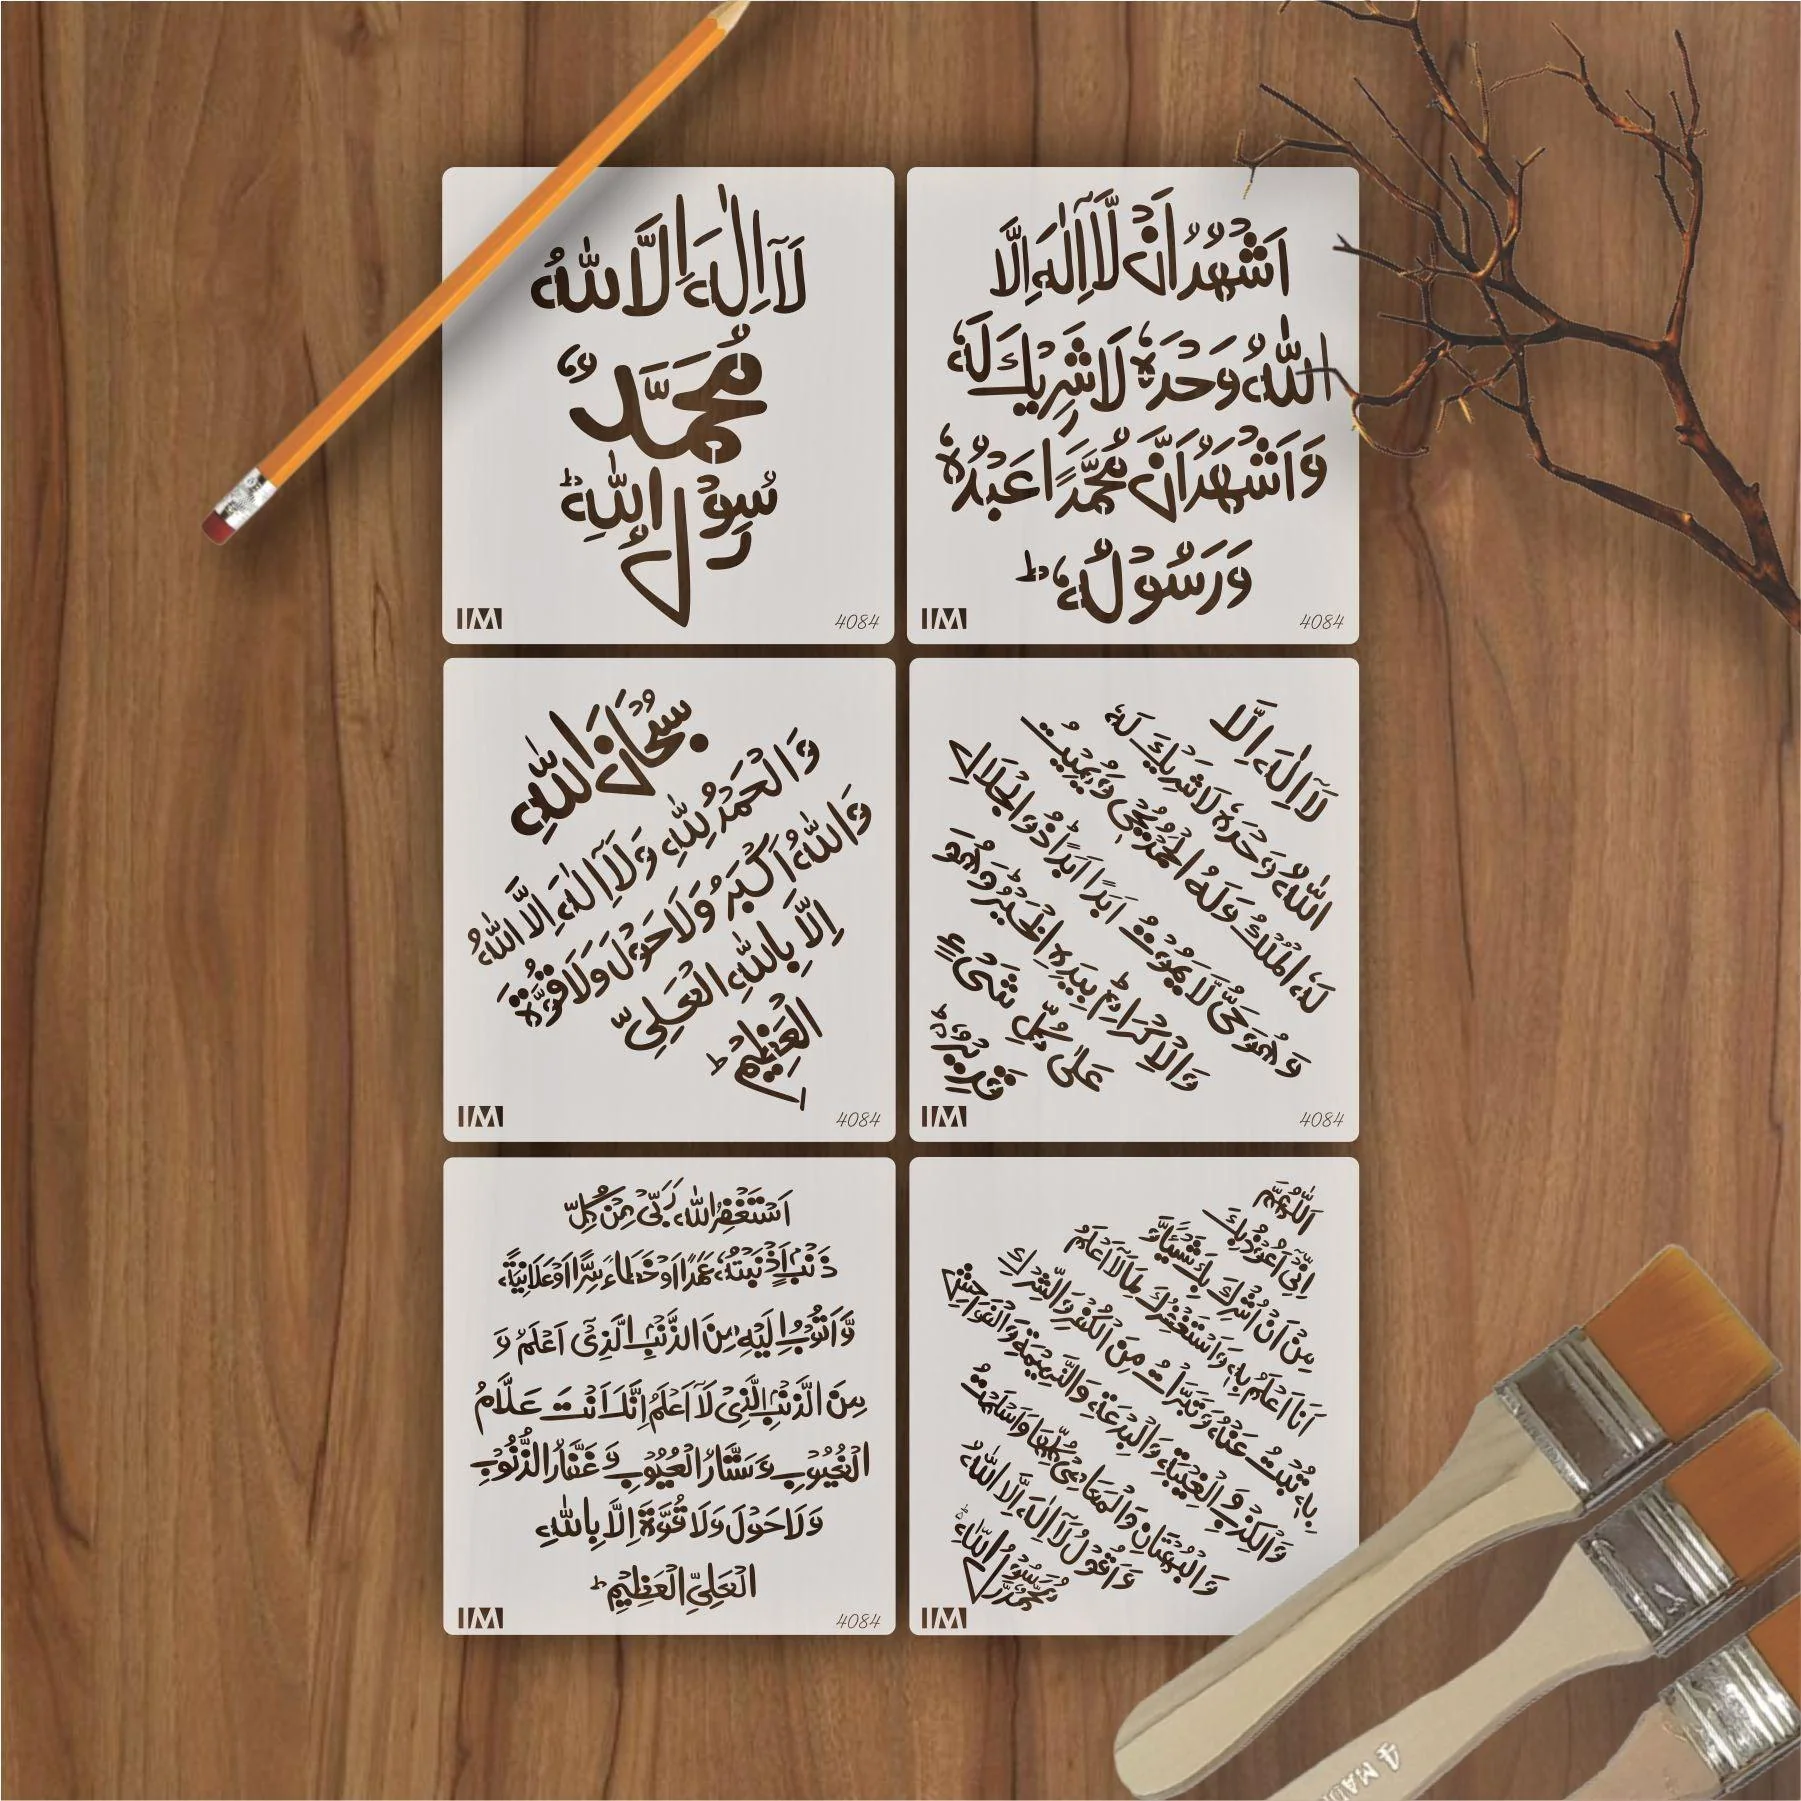 لَآ اِلٰهَ اِلَّا اللّٰهُ
مُحَمَّدٌ
رَّسُوْلُ اللّٰهِ ؕ
IM 4084
اَشْهَدُ اَنْ لَّآ اِلٰهَ اِلَّا
اللّٰهُ وَحْدَهٗ لَا شَرِيْكَ لَهٗ
وَاَشْهَدُ اَنَّ مُحَمَّدًا عَبْدُهٗ
وَرَسُوْلُهٗ ؕ
IM 4084
سُبْحَانَ اللّٰهِ
وَالْحَمْدُ لِلّٰهِ وَلَآ اِلٰهَ اِلَّا اللّٰهُ
وَاللّٰهُ اَكْبَرُ وَلَا حَوْلَ وَلَا قُوَّةَ
اِلَّا بِاللّٰهِ الْعَلِيِّ
الْعَظِيْمِ ؕ
IM 4084
لَآ اِلٰهَ اِلَّا
اللّٰهُ وَحْدَهٗ لَا شَرِيْكَ لَهٗ
لَهُ الْمُلْكُ وَلَهُ الْحَمْدُ يُحْيٖ وَيُمِيْتُ
وَهُوَ حَیٌّ لَّا يَمُوْتُ اَبَدًا اَبَدًا ؕ ذُو الْجَلَالِ
وَالْاِكْرَامِ ؕ بِيَدِهِ الْخَيْرُ ؕ وَهُوَ
عَلٰى كُلِّ شَیْءٍ
قَدِيْرٌ ؕ
IM 4084
اَسْتَغْفِرُ اللّٰهَ رَبِّیْ مِنْ كُلِّ
ذَنْۢبٍ اَذْنَبْتُهٗ عَمَدًا اَوْ خَطَاءً سِرًّا اَوْ عَلَانِيَةً
وَّاَتُوْبُ اِلَيْهِ مِنَ الذَّنْۢبِ الَّذِیْٓ اَعْلَمُ وَ
مِنَ الذَّنْۢبِ الَّذِیْ لَآ اَعْلَمُ اِنَّكَ اَنْتَ عَلَّامُ
الْغُيُوْبِ وَسَتَّارُ الْعُيُوْبِ وَغَفَّارُ الذُّنُوْبِ
وَلَا حَوْلَ وَلَا قُوَّةَ اِلَّا بِاللّٰهِ
الْعَلِیِّ الْعَظِيْمِ ؕ
IM 4084
اَللّٰهُمَّ
اِنِّیْٓ اَعُوْذُ بِكَ
مِنْ اَنْ اُشْرِكَ بِكَ شَيْئًا وَّ
اَنَا اَعْلَمُ بِهٖ وَاَسْتَغْفِرُكَ لِمَا لَآ اَعْلَمُ
بِهٖ تُبْتُ عَنْهُ وَتَبَرَّاْتُ مِنَ الْكُفْرِ وَالشِّرْكِ
وَالْكِذْبِ وَالْغِيْبَةِ وَالْبِدْعَةِ وَالنَّمِيْمَةِ وَالْفَوَاحِشِ
وَالْبُهْتَانِ وَالْمَعَاصِیْ كُلِّهَا وَاَسْلَمْتُ
وَاَقُوْلُ لَآ اِلٰهَ اِلَّا اللّٰهُ
مُحَمَّدٌ رَّسُوْلُ اللّٰهِ ؕ
IM
4 MAD